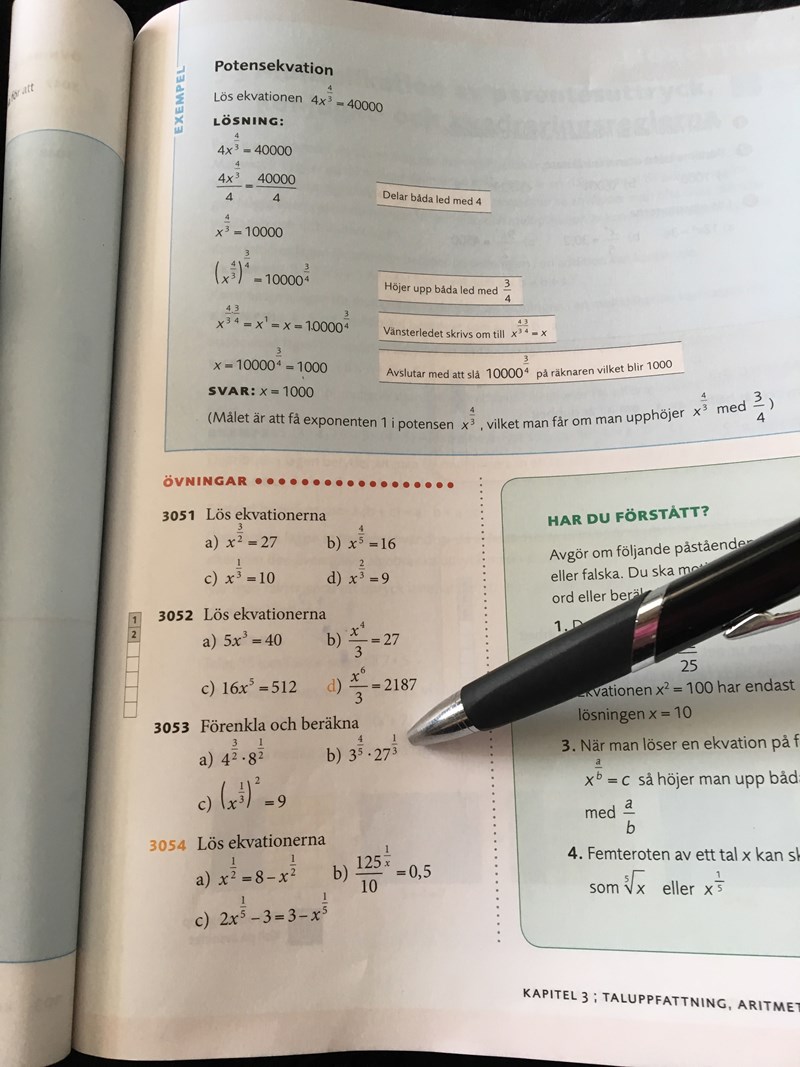 för att
EXEMPEL
Potensekvation
Lös ekvationen 4x^(4/3) = 40000
LÖSNING:
4x^(4/3) = 40000
4x^(4/3)/4 = 40000/4 Delar båda led med 4
x^(4/3) = 10000
(x^(4/3))^(3/4) = 10000^(3/4) Höjer upp båda led med 3/4
x^(4/3·3/4) = x^1 = x = 10000^(3/4) Vänsterledet skrivs om till x^(4/3·3/4) = x
x = 10000^(3/4) = 1000 Avslutar med att slå 10000^(3/4) på räknaren vilket blir 1000
SVAR: x = 1000
(Målet är att få exponenten 1 i potensen x^(4/3), vilket man får om man upphöjer x^(4/3) med 3/4)
ÖVNINGAR
3051 Lös ekvationerna
a) x^(3/2) = 27 b) x^(4/5) = 16
c) x^(1/3) = 10 d) x^(2/3) = 9
1
2
3052 Lös ekvationerna
a) 5x^3 = 40 b) x^4/3 = 27
c) 16x^5 = 512 d) x^6/3 = 2187
3053 Förenkla och beräkna
a) 4^(3/2) · 8^(1/2) b) 3^(4/5) · 27^(1/3)
c) (x^(1/3))^2 = 9
3054 Lös ekvationerna
a) x^(1/2) = 8 – x^(1/2) b) 125^(1/x)/10 = 0,5
c) 2x^(1/5) – 3 = 3 – x^(1/5)
HAR DU FÖRSTÅTT?
Avgör om följande påståenden
eller falska. Du ska
ord eller
1.
25
ekvationen x^2 = 100 har endast
lösningen x = 10
3. När man löser en ekvation på
x^(a/b) = c så höjer man upp
med a/b
4. Femteroten av ett tal x kan
som ⁵√x eller x^(1/5)
KAPITEL 3 ; TALUPPFATTNING,